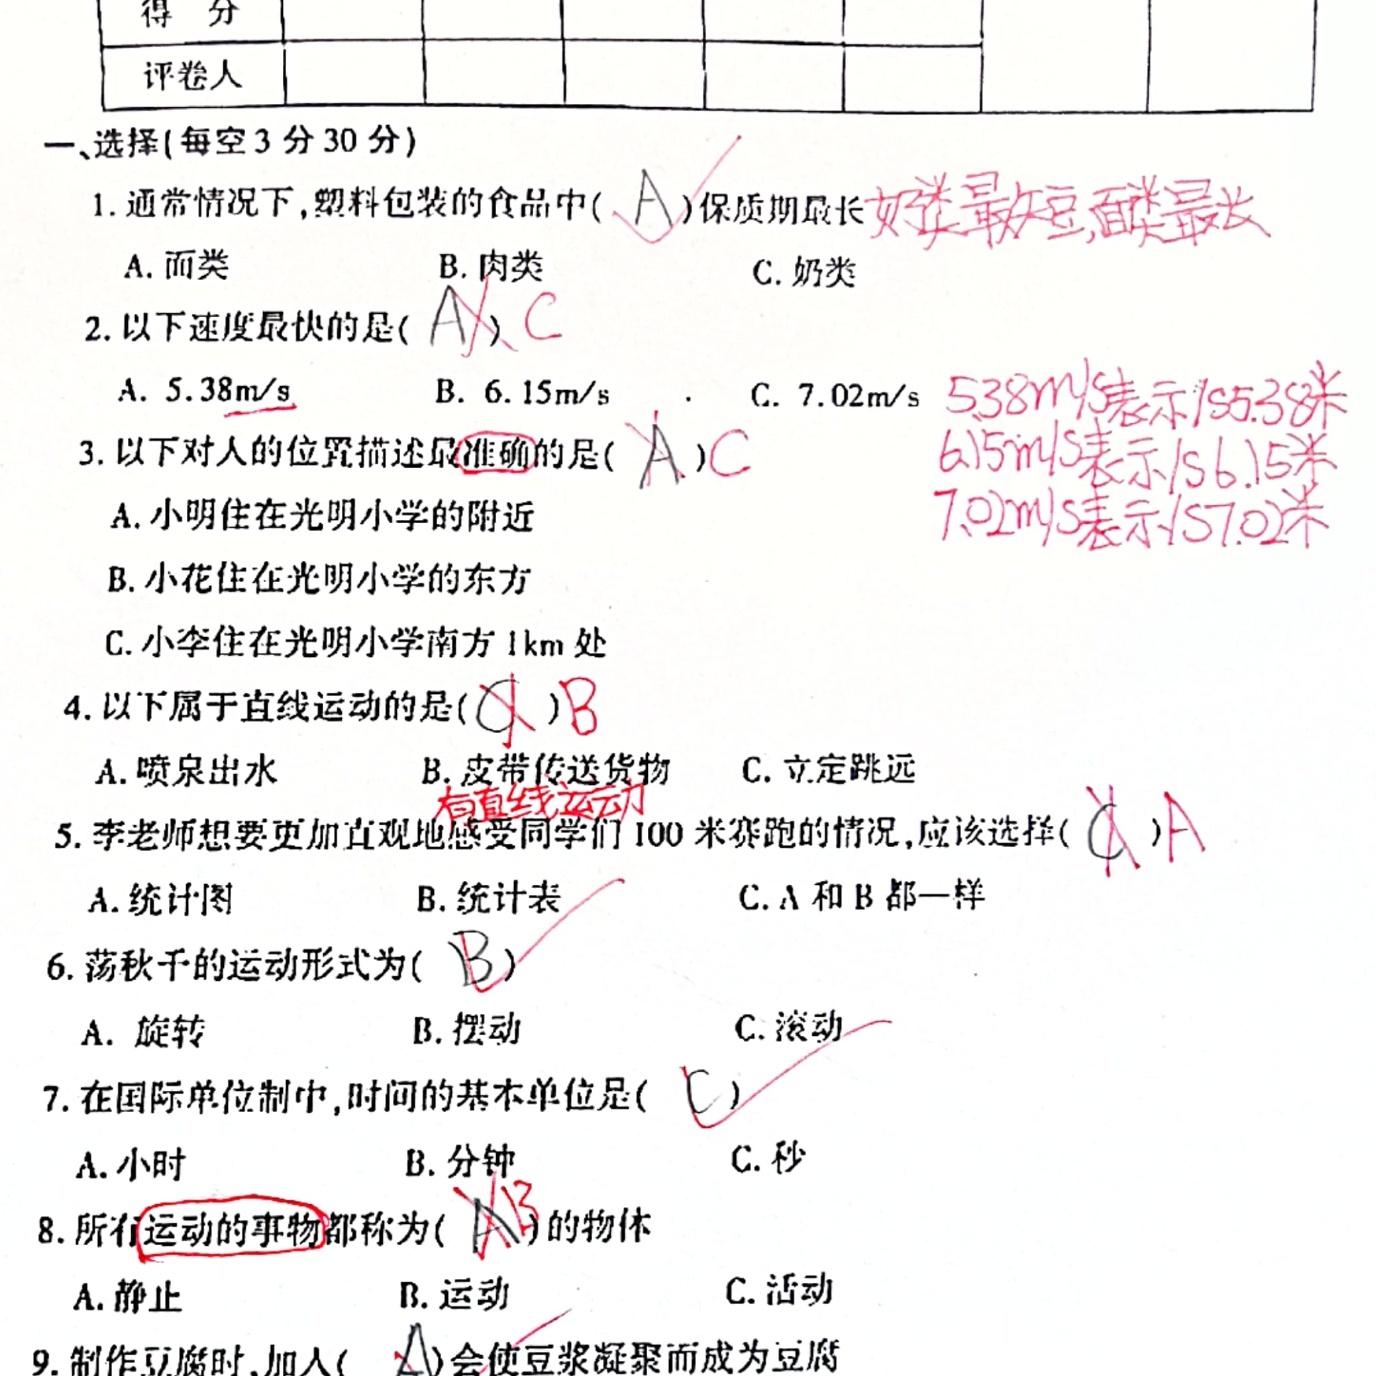 得 分
评卷人
一、选择(每空3分30分)
1. 通常情况下,塑料包装的食品中( A )保质期最长 奶类最短,面类最长
A. 面类 B. 肉类 C. 奶类
2. 以下速度最快的是( A ) C
A. 5.38m/s B. 6.15m/s C. 7.02m/s 5.38m/s表示1s5.38米
6.15m/s表示1s6.15米
3. 以下对人的位置描述最准确的是( A ) C
7.02m/s表示1s7.02米
A. 小明住在光明小学的附近
B. 小花住在光明小学的东方
C. 小李住在光明小学南方1km处
4. 以下属于直线运动的是( C ) B
A. 喷泉出水 B. 皮带传送货物 C. 立定跳远
有直线运动
5. 李老师想要更加直观地感受同学们100米赛跑的情况,应该选择( C ) A
A. 统计图 B. 统计表 C. A和B都一样
6. 荡秋千的运动形式为( B )
A. 旋转 B. 摆动 C. 滚动
7. 在国际单位制中,时间的基本单位是( C )
A. 小时 B. 分钟 C. 秒
8. 所有运动的事物都称为( A B )的物体
A. 静止 B. 运动 C. 活动
9. 制作豆腐时,加入( A )会使豆浆凝聚而成为豆腐